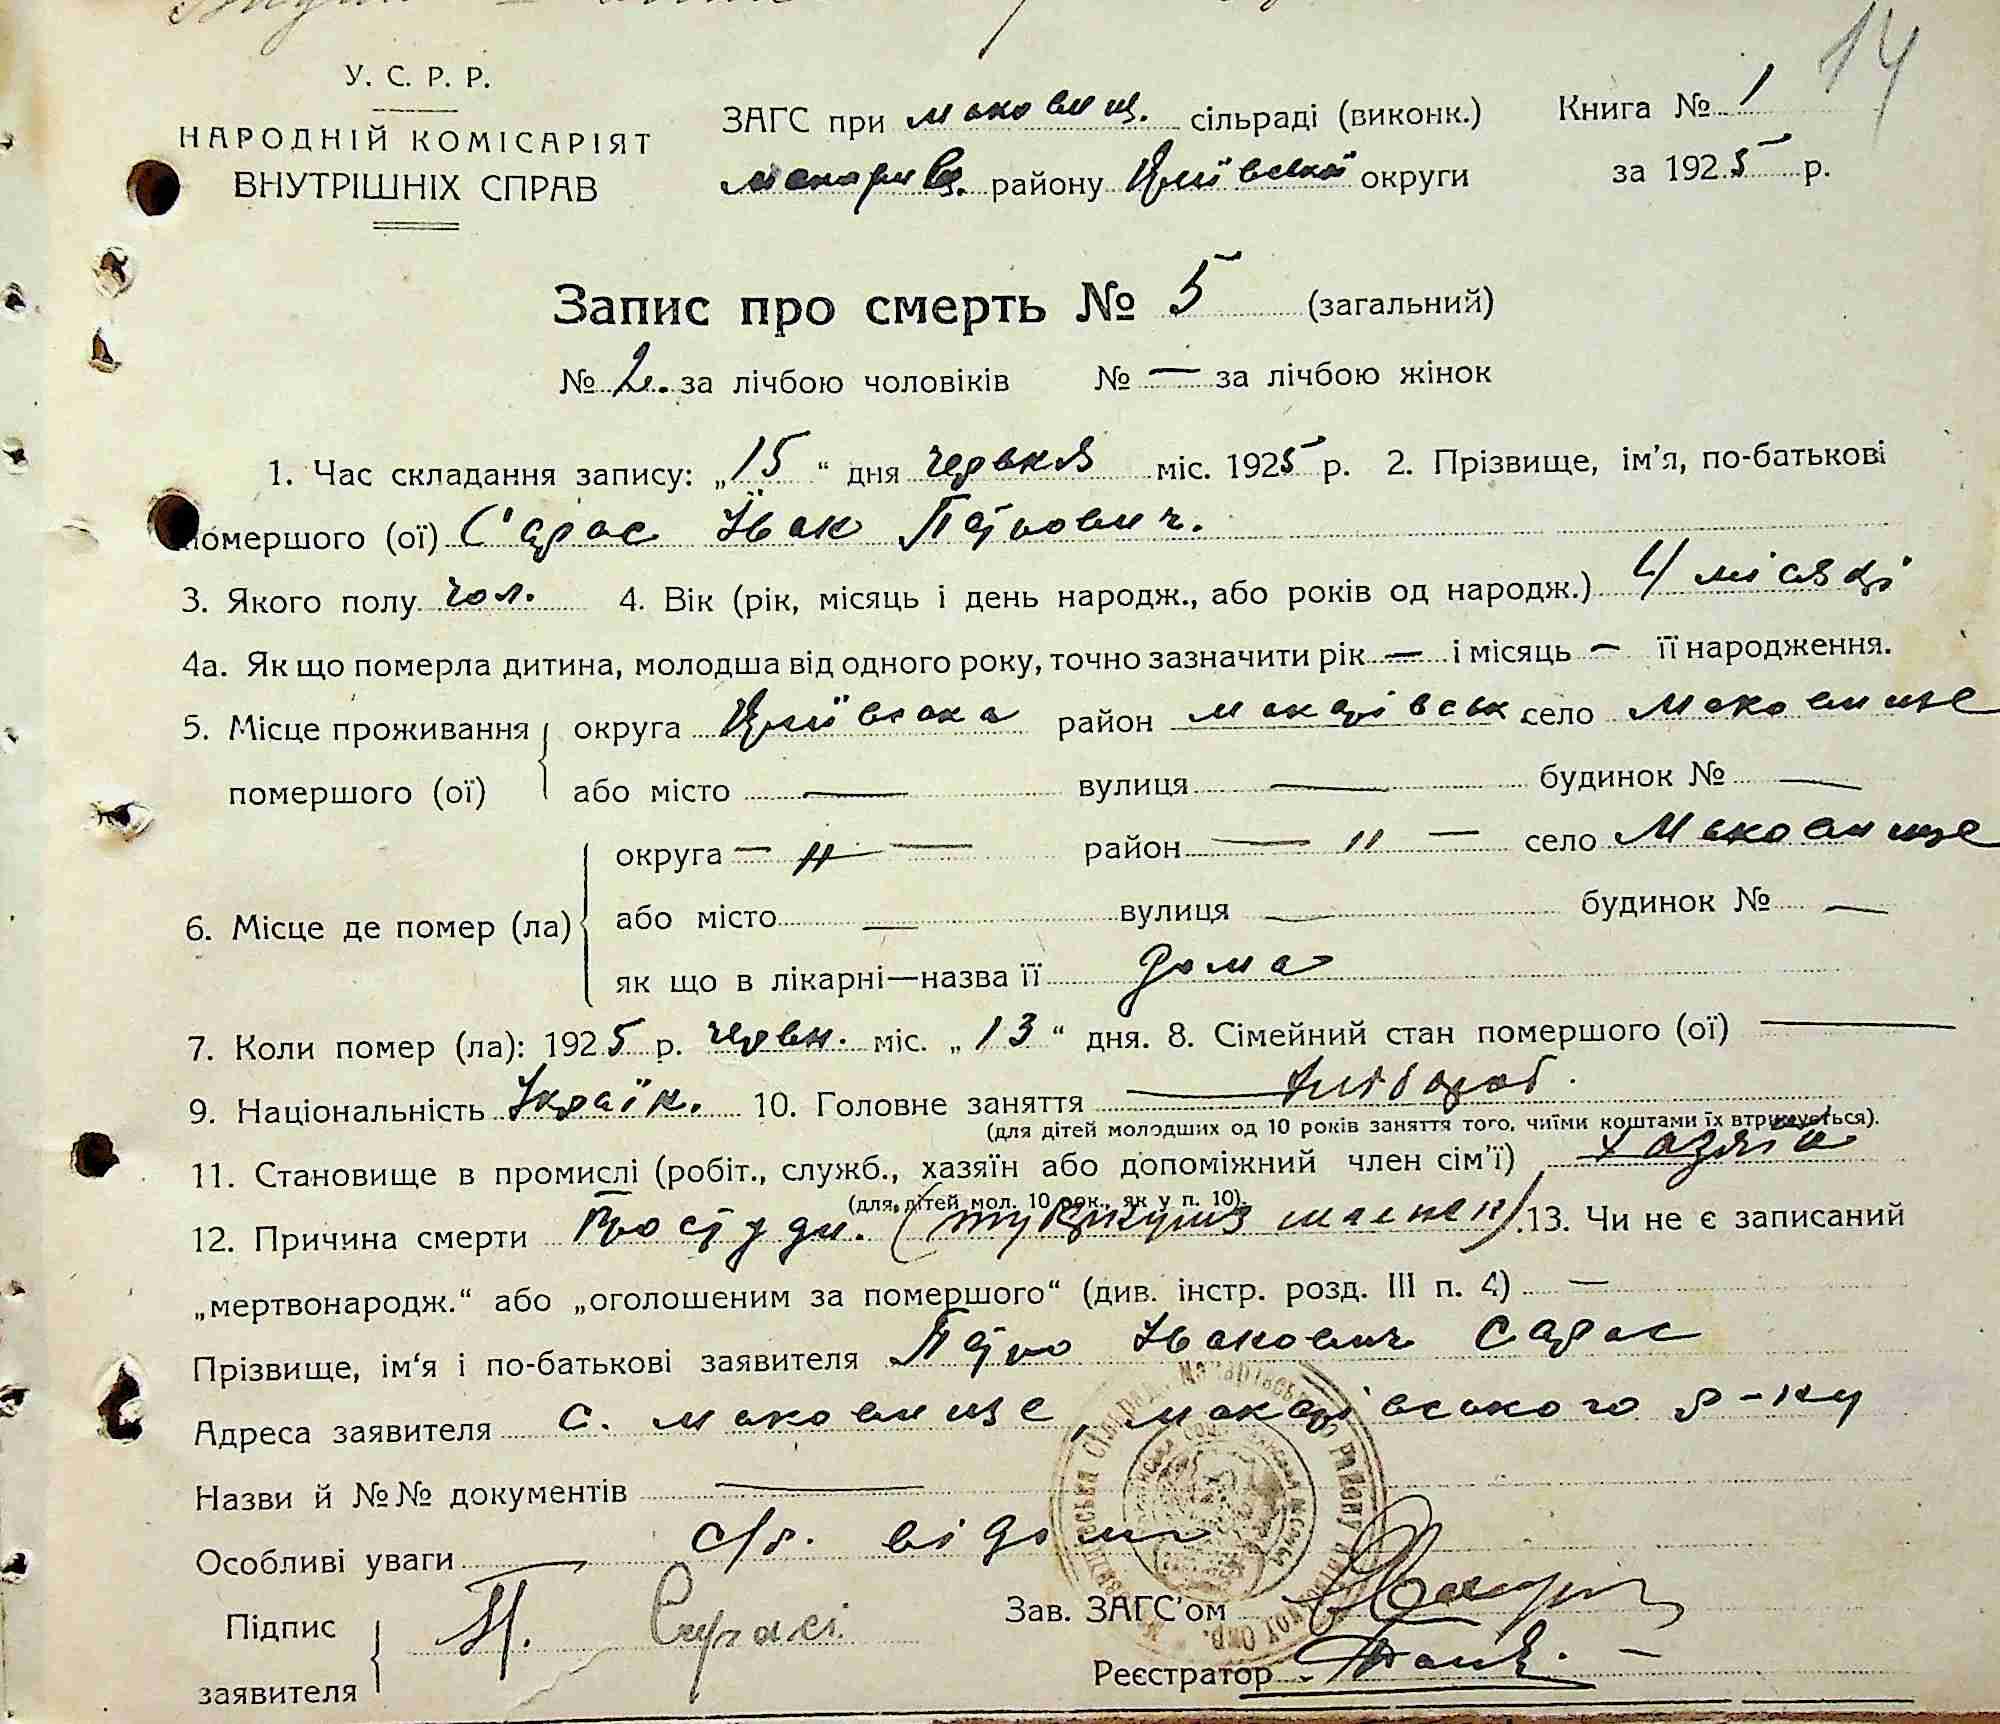 14
У. С. Р. Р.
НАРОДНІЙ КОМІСАРІЯТ
ВНУТРІШНІХ СПРАВ
ЗАГС при маковищ. сільраді (виконк.)
макарив. району Київської округи
Книга № 1
за 1925 р.
Запис про смерть № 5 (загальний)
№ 2. за лічбою чоловіків № — за лічбою жінок
1. Час складання запису: „15“ дня червня міс. 1925 р. 2. Прізвище, ім'я, по-батькові
помершого (ої) Сарас Іван Петрович.
3. Якого полу чол. 4. Вік (рік, місяць і день народж., або років од народж.) 4 місяці
4а. Як що померла дитина, молодша від одного року, точно зазначити рік — і місяць — її народження.
5. Місце проживання округа Київська район макарівськ. село Маковище
помершого (ої) або місто — вулиця — будинок № —
округа — „ — район — „ — село Маковище
6. Місце де помер (ла) або місто — вулиця — будинок № —
як що в лікарні—назва її дома
7. Коли помер (ла): 1925 р. червн. міс. „13“ дня. 8. Сімейний стан помершого (ої) —
9. Національність Україн. 10. Головне заняття — хлібороб.
(для дітей молодших од 10 років заняття того, чиїми коштами їх втримується).
11. Становище в промислі (робіт., служб., хазяїн або допоміжний член сім'ї) хазяїн
(для дітей мол. 10 рок., як у п. 10).
12. Причина смерти Простуди. 13. Чи не є записаний
„мертвонародж.“ або „оголошеним за помершого“ (див. інстр. розд. III п. 4) —
Прізвище, ім'я і по-батькові заявителя Петро Іванович Сарас
Адреса заявителя с. маковище, макарівського р-ну
Назви й №№ документів —
Особливі уваги — с/р. відомо
Підпис
заявителя П. Сарасі
Зав. ЗАГС'ом
Реєстратор